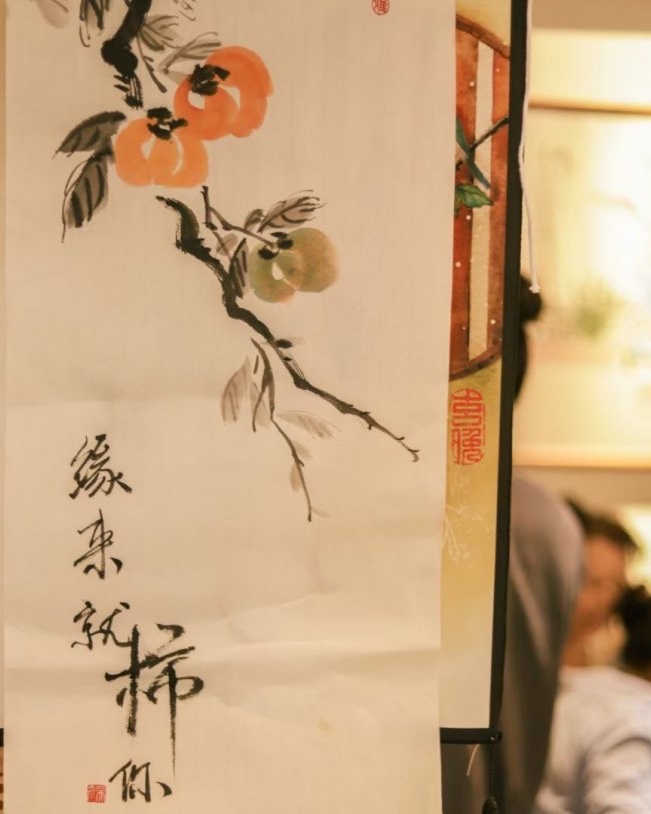 缘来就柿你